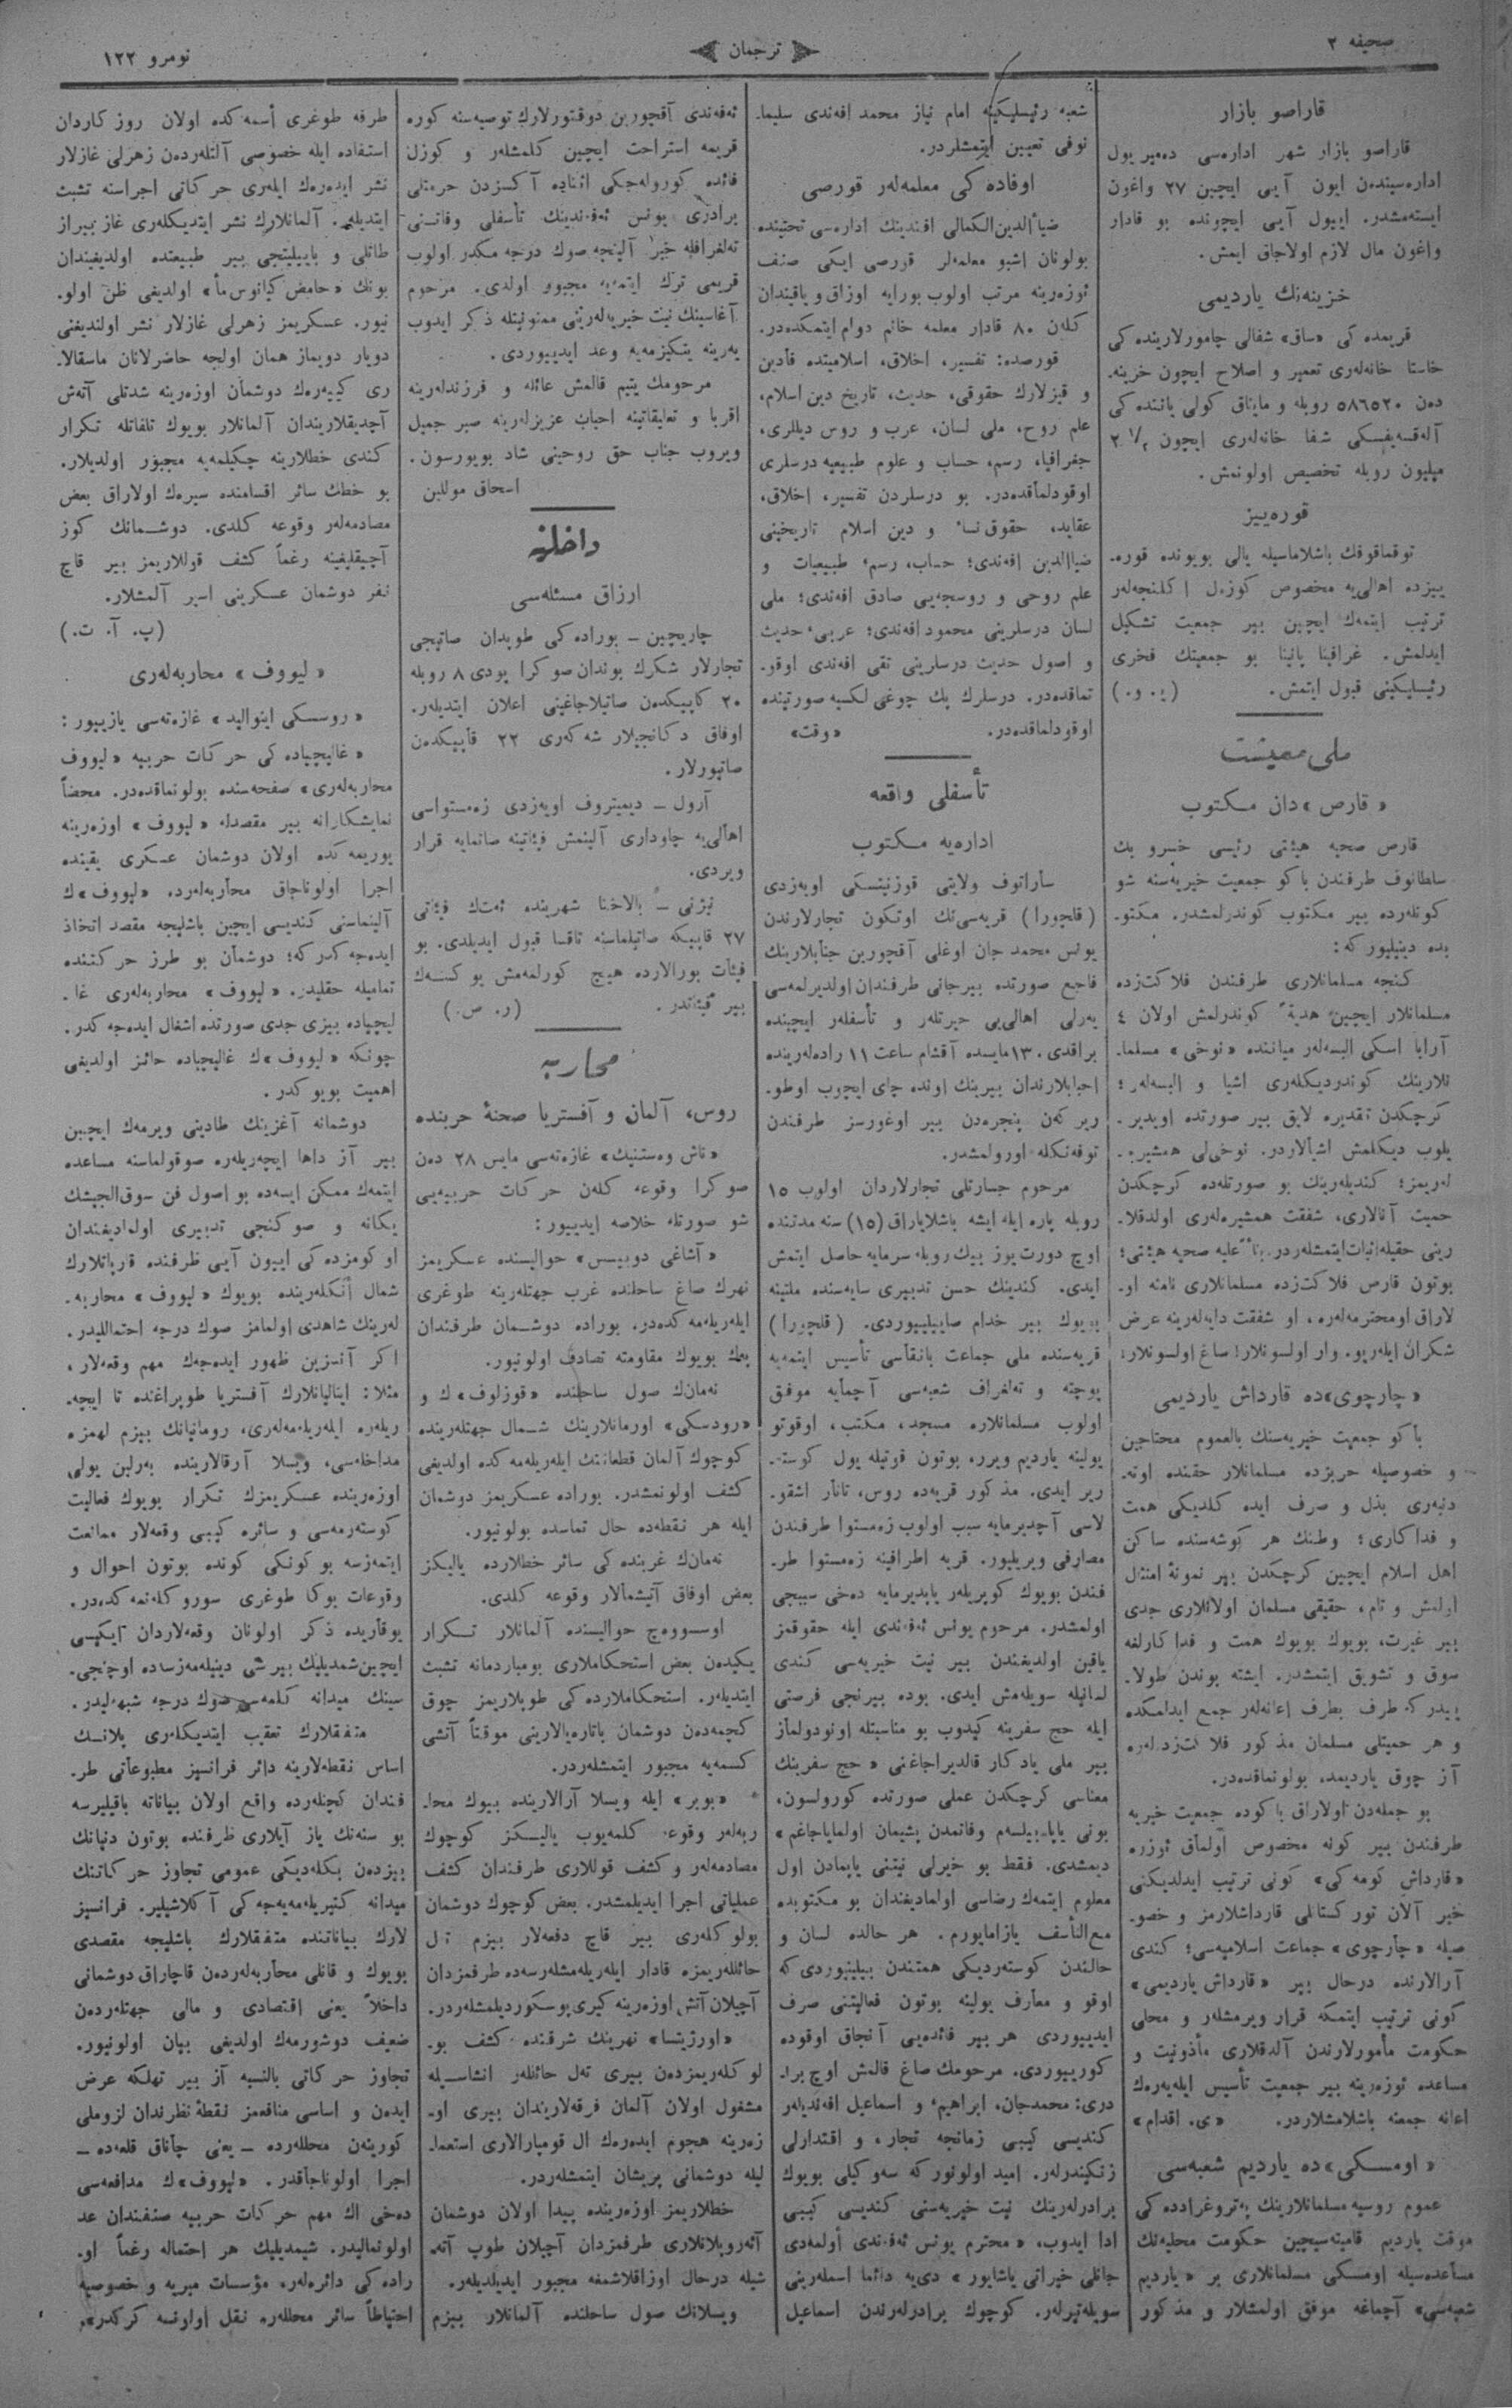 صحیفه ٢
ترجمان
نومرو ١٢٢
قاراصو بازار
قاراصو بازار شهر اداره‌سی ده‌میر یول
اداره‌سیندن ایون آیی ایچین ٢٧ واغون
ایسته‌مشدر. اییول آیی ایچونده بو قادار
واغون مال لازم اولاجاق ایمش.
خزینه‌نك یاردیمی
قریمده کی «ساق» شفالی چامورلارینده کی
خاستا خانه‌لەری تعمیر و اصلاح ایچون خزینه‌ـ
دەن ٥٨٦٥٢٠ روبله و مایناق کولی یاننده کی
آلەقسەیفسکی شفا خانه‌لەری ایچون ٢١/٢
میلیون روبله تخصیص اولونمش.
قوره‌ییز
توقماقوفك باشلاماسیله یالی بویونده قوره‌ـ
ییزده اهالی‌یه مخصوص کوزەل اکلنجه‌لەر
ترتیب ایتمه‌ك ایچین بیر جمعیت تشکیل
ایدلمش. غرافینا پانینا بو جمعیتك فخری
رئیسلیکینی قبول ایتمش. (ی. و.)
ملی معیشت
«قارص» دان مکتوب
قارص صحیه هیئتی رئیسی خسرو بك
سلطانوف طرفندن باکو جمعیت خیریه‌سنه شو
کونلەرده بیر مکتوب کوندرلمشدر. مکتوـ
بده دینیلیور که:
کنجه مسلمانلاری طرفندن فلاکت‌زده
مسلمانلار ایچین هدیةً کوندرلمش اولان ٤
آرابا اسکی البسه‌لەر میاننده «نوخی» مسلماـ
نلارینك کوندردیکلەری اشیا و البسه‌لەر؛
کرچکدن تقدیره لایق بیر صورتده اویدیرـ
یلوب دیکلمش اشیالاردر. نوخی‌لی همشیرەـ
لەریمز؛ کندیلەرینك بو صورتلەده کرچکدن
حمیت آنالاری، شفقت همشیره‌لەری اولدقلاـ
رینی حقیله اثبات ایتمشلەردر. بناءً علیه صحیه هیئتی؛
بوتون قارص فلاکت‌زده مسلمانلاری نامنه اوـ
لاراق او محترمه‌لەره، او شفقت دایه‌لەرینه عرض
شکران ایله‌ریو. وار اولسونلار! ساغ اولسونلار!
«چارجوی» ده قارداش یاردیمی
باکو جمعیت خیریه‌سنك بالعموم محتاجین
و خصوصیله حربزده مسلمانلار حقنده اوته‌ـ
دنبه‌ری بذل و صرف ایده کلدیکی همت
و فداکاری؛ وطنك هر کوشه‌سنده ساکن
اهل اسلام ایچین کرچکدن بیر نمونهٔ امتثال
اولمش و تام، حقیقی مسلمان اولانلاری جدی
بیر غیرت، بویوك بویوك همت و فداکارلغه
سوق و تشویق ایتمشدر. ایشته بوندن طولاـ
ییدر که طرف بطرف اعانه‌لەر جمع ایدلمکده
و هر حمیتلی مسلمان مذکور فلاکت‌زده‌لەره
آز چوق یاردیمده بولونماقده‌در.
بو جمله‌دن اولاراق باکوده جمعیت خیریه
طرفندن بیر کونه مخصوص اولماق ئوزره
«قارداش کومه کی» کونی ترتیب ایدلدیکنی
خبر آلان تورکستانلی قارداشلارمز و خصوـ
صیله «چارجوی» جماعت اسلامیه‌سی؛ کندی
آرالارنده درحال بیر «قارداش یاردیمی»
کونی ترتیب ایتمکه قرار ویرمشلەر و محلی
حکومت مأمورلارندن آلدقلاری مأذونیت و
مساعده ئوزەرینه بیر جمعیت تأسیس ایله‌یه‌رەك
اعانه جمعنه باشلامشلاردر. «ی. اقدام»
«اومسکی» ده یاردیم شعبه‌سی
عموم روسیه مسلمانلارینك پتروغرادده کی
موقت یاردیم قامیته‌سیچین حکومت محلیه‌نك
مساعده‌سیله اومسکی مسلمانلاری بر «یاردیم
شعبه‌سی» آچماغه موفق اولمشلار و مذکور
شعبه رئیسلیکینه امام نیاز محمد افەندی سلیماـ
نوفی تعیین ایتمشلردر.
اوفاده کی معلمه‌لەر قورصی
ضیاءالدین الکمالی افندینك اداره‌سی تحتینده
بولونان اشبو معلمه‌لر قورصی ایکی صنف
ئوزەرینه مرتب اولوب بورایه اوزاق و یاقیندان
کلەن ٨٠ قادار معلمه خانم دوام ایتمکده‌در.
قورصده: تفسیر، اخلاق، اسلامیتده قادین
و قیزلارك حقوقی، حدیث، تاریخ دین اسلام،
علم روح، ملی لسان، عرب و روس دیللری،
جغرافیا، رسم، حساب و علوم طبیعیه درسلری
اوقودلماقده‌در. بو درسلردن تفسیر، اخلاق،
عقاید، حقوق نساء و دین اسلام تاریخینی
ضیاالدین افەندی؛ حساب، رسم، طبیعیات و
علم روحی و روسجه‌یی صادق افەندی؛ ملی
لسان درسلرینی محمود افەندی؛ عربی، حدیث
و اصول حدیث درسلرینی تقی افەندی اوقوـ
تماقده‌در. درسلرك پك چوغی لکسیه صورتینده
اوقودلماقده‌در. «وقت»
تأسفلی واقعه
اداره‌یه مکتوب
ساراتوف ولایتی قوزنیتسکی اویەزدی
(قلچورا) قریه‌سی‌نك اوتکون تجارلارندن
یونس محمد جان اوغلی آقچورین جنابلارینك
فاجع صورتده بیرجانی طرفندان اولدیرلمه‌سی
یەرلی اهالی‌یی حیرتلەر و تأسفلەر ایچینده
براقدی. ١٣ مایسده آقشام ساعت ١١ راده‌لەرینده
احبابلارندان بیرینك اونده چای ایچوب اوطوـ
ریر کەن پنجره‌دن بیر اوغورسز طرفندن
توفەنکله اورولمشدر.
مرحوم جسارتلی تجارلاردان اولوب ١٥
روبله پاره ایله ایشه باشلایاراق (١٥) سنه مدتنده
اوچ دورت یوز بیك روبله سرمایه حاصل ایتمش
ایدی. کندینك حسن تدبیری سایه‌سنده ملتینه
بویوك بیر خدام صاییلییوردی. (قلچورا)
قریه‌سنده ملی جماعت بانقاسی تأسیس ایتمه‌یه
پوچته و تەلغراف شعبه‌سی آچمایه موفق
اولوب مسلمانلاره مسجد، مکتب، اوقوتو
یولینه یاردیم ویرر، بوتون قوتیله یول کوسته‌ـ
ریر ایدی. مذکور قریه‌ده روس، تاتار اشقوـ
لاسی آچدیرمایه سبب اولوب زەمستوا طرفندن
مصارفی ویریلیور. قریه اطرافینه زەمستوا طرـ
فندن بویوك کوپریلەر یاپدیرمایه ده‌خی سببجی
اولمشدر. مرحوم یونس ئەفندی ایله حقوقمز
یاقین اولدیغندن بیر نیت خیریه‌سی کندی
لسانیله سویله‌مش ایدی. بوده بیرنجی فرصتی
ایله حج سفرینه کیدوب بو مناسبتله اونودولماز
بیر ملی یادکار قالدیراجاغنی «حج سفرینك
معناسی کرچکدن عملی صورتده کورولسون،
بونی یاپا بیلسەم وفاتمدن پشیمان اولمایاجاغم»
دیمشدی. فقط بو خیرلی نیتنی یاپمادن اول
معلوم ایتمه‌ك رضاسی اولمادیغندان بو مکتوبده
مع‌التأسف یازامایورم. هر حالده لسان و
حالندن کوسته‌ردیکی همتندن بیلینیوردی که
اوقو و معارف یولینه بوتون فعالیتنی صرف
ایدییوردی هر بیر فائده‌یی آنجاق اوقوده
کورییوردی. مرحومك صاغ قالمش اوچ براـ
دری: محمدجان، ابراهیم و اسماعیل افەندیلەر
کندیسی کیبی زمانجه تجار، و اقتدارلی
زنکیندرلەر. امید اولونور که سەوکیلی بویوك
برادرلەرینك نیت خیریه‌سنی کندیسی کیبی
ادا ایدوب، «محترم یونس ئەفندی أولمەدی
جانلی خیراتی یاشایور» دی‌یه دائما اسملەرینی
سویله‌تیرلەر. کوچوك برادرلەرندن اسماعیل
ئەفەندی آقچورین دوقتورلارك توصیه‌سنه کوره
قریمه استراحت ایچین کلمشلەر و کوزل
فائده کوروله‌جکی اثناده آکسزدن حرمتلی
برادری یونس ئەفەندینك تأسفلی وفاتنی
تەلغرافله خبر آلینجه صوك درجه مکدر اولوب
قریمی ترك ایتمه‌یه مجبور اولدی. مرحوم
آغاسینك نیت خیریه‌لەرینی ممنونیتله ذکر ایدوب
یەرینه یتکیزمه‌یه وعد ایدییوردی.
مرحومك یتیم قالمش عائله و فرزندلەرینه
اقربا و تعلیقاتینه احباب عزیزلەرینه صبر جمیل
ویروب جناب حق روحینی شاد بویورسون.
اسحاق موللین
داخلیه
ارزاق مسئله‌سی
چاریچین – بوراده کی طوپدان صاتیجی
تجارلار شکرك بوندان صوکرا پودی ٨ روبله
٢٠ کاپیکدەن صاتیلاجاغینی اعلان ایتدیلەر.
اوفاق دکانجیلار شەکەری ٢٢ قاپیکدەن
صاتیورلار.
آرول – دیمیتروف اویەزدی زەمستواسی
اهالی‌یه چاوداری آلینمش فیئاتینه صاتمایه قرار
ویردی.
نیژنی – بالاخنا شهرینده ئەتك فیئاتی
٢٧ قاپیکه صاتیلماسنه تاقسا قبول ایدیلدی. بو
فیئات بورالارده هیچ کورلمەمش یوکسەك
بیر فیئاتدر. (ر. ص.)
محاربه
روس، آلمان و آفستریا صحنهٔ حربنده
«ناش وەستنیك» غازه‌ته‌سی مایس ٢٨ دەن
صوکرا وقوعه کلەن حرکات حربیه‌یی
شو صورتله خلاصه ایدییور:
«آشاغی دوبیسس» حوالیسنده عسکریمز
نهرك صاغ ساحلنده غرب جهتلەرینه طوغری
ایلەریله‌مه کده‌در. بوراده دوشمان طرفندان
پك بویوك مقاومته تصادف اولونیور.
نەمان‌ك صول ساحلنده «قوزلوف» ك و
«رودسکی» اورمانلارینك شمال جهتلەرینده
کوچوك آلمان قطعاتنك ایلەریله‌مه کده اولدیغی
کشف اولونمشدر. بوراده عسکریمز دوشمان
ایله هر نقطه‌ده حال تماسده بولونیور.
نەمان‌ك غربنده کی سائر خطلارده یالیکز
بعض اوفاق آتیشمالار وقوعه کلدی.
اوسووەچ حوالیسنده آلمانلار تکرار
یکیدەن بعض استحکاملاری بومباردمانه تشبث
ایتدیلەر. استحکاملارده کی طوپلاریمز چوق
کچمه‌دەن دوشمان باتاره‌یالارینی موقتاً آتشی
کسمه‌یه مجبور ایتمشلەردر.
«بوبر» ایله ویسلا آرالارینده بیوك محاـ
ربه‌لەر وقوعه کلمه‌یوب یالیکز کوچوك
مصادمه‌لەر و کشف قوللاری طرفندان کشف
عملیاتی اجرا ایدیلمشدر. بعض کوچوك دوشمان
بولوکلەری بیر قاچ دفعه‌لار بیزم تل
حائللەریمزه قادار ایلەریله‌مشلەرسه‌ده طرفمزدان
آچیلان آتش اوزەرینه کیری پوسکوردیلمشلەردر.
«اورژیتسا» نهرینك شرقنده کشف بوـ
لوکلەریمزدەن بیری تەل حائللەر انشاسیله
مشغول اولان آلمان فرقه‌لاریندان بیری اوـ
زەرینه هجوم ایده‌رەك ال قومپارالاری استعماـ
لیله دوشمانی پریشان ایتمشلەردر.
خطلاریمز اوزەرینده پیدا اولان دوشمان
آئەروپلانلاری طرفمزدان آچیلان طوپ آته‌ـ
شیله درحال اوزاقلاشمغه مجبور ایدیلدیلەر.
ویسلانك صول ساحلنده آلمانلار بیزم
طرفه طوغری أسمه کده اولان روزکاردان
استفاده ایله خصوصی آلتلەردەن زهرلی غازلار
نشر ایده‌رەك ایلەری حرکاتی اجراسنه تشبث
ایتدیلەر. آلمانلارك نشر ایتدیکلەری غاز بیراز
طاتلی و بایییلتیجی بیر طبیعتده اولدیغیندان
بونك «حامض کیانوس‌مأ» اولدیغی ظن اولوـ
نیور. عسکریمز زهرلی غازلار نشر اولندیغنی
دویار دویماز همان اولجه حاضرلانان ماسقالاـ
ری کییه‌رەك دوشمان اوزەرینه شدتلی آتەش
آچدیقلاریندان آلمانلار بویوك تلفاتله تکرار
کندی خطلارینه چکیلمه‌یه مجبور اولدیلار.
بو خطك سائر اقسامنده سیرەك اولاراق بعض
مصادمه‌لەر وقوعه کلدی. دوشمانك کوز
آچیقلیغینه رغماً کشف قوللاریمز بیر قاچ
نفر دوشمان عسکرینی اسیر آلمشلار.
(پ. آ. ت.)
«لیووف» محاربه‌لەری
«روسسکی اینوالید» غازه‌ته‌سی یازییور:
«غالیچیاده کی حرکات حربیه «لیووف
محاربه‌لەری» صفحه‌سنده بولونماقده‌در. محضاً
نمایشکارانه بیر مقصدله «لیووف» اوزەرینه
یوریمه کده اولان دوشمان عسکری یقینده
اجرا اولوناجاق محاربه‌لەرده «لیووف» ك
آلینماسنی کندیسی ایچین باشلیجه مقصد اتخاذ
ایده‌جه کدر که؛ دوشمان بو طرز حرکتنده
تمامیله حقلیدر. «لیووف» محاربه‌لەری غاـ
لیچیاده بیزی جدی صورتده اشغال ایده‌جه کدر.
چونکه «لیووف» ك غالیچیاده حائز اولدیغی
اهمیت بویوکدر.
دوشمانه آغزینك طادینی ویرمه‌ك ایچین
بیر آز داها ایچه‌ریلەره صوقولماسنه مساعده
ایتمه‌ك ممکن ایسه‌ده بو اصول فن سوق‌الجیشك
یکانه و صوکنجی تدبیری اولمادیغندان
اوکومزده کی اییون آیی ظرفنده قارپاتلارك
شمال أتکلەرینده بویوك «لیووف» محاربه‌ـ
لەرینك شاهدی اولمامز صوك درجه احتمالیدر.
اکر آنسزین ظهور ایده‌جەك مهم وقعه‌لار،
مثلا: ایتالیانلارك آفستریا طوپراغنده تا ایچه‌ـ
ریلەره ایلەریله‌مه‌لەری، رومانیانك بیزم لهمزه
مداخله‌سی، ویسلا آرقالارینده بەرلین یولی
اوزەرینده عسکریمزك تکرار بویوك فعالیت
کوسته‌رمه‌سی و سائره کیبی وقعه‌لار ممانعت
ایتمەزسه بو کونکی کونده بوتون احوال و
وقوعات بوکا طوغری سوروکله‌نمه کده‌در.
یوقاریده ذکر اولونان وقعه‌لاردان ایکیسی
ایچین شمدیلیك بیر شی دینیله‌مەزساده اوچنجی‌ـ
سینك میدانه کلمه‌سی صوك درجه شبهه‌لیدر.
متفقلارك تعقب ایتدیکلەری پلانك
اساس نقطه‌لارینه دائر فرانسیز مطبوعاتی طرـ
فندان کچنلەرده واقع اولان بیاناته باقیلیرسه
بو سنه‌نك یاز آیلاری ظرفنده بوتون دنیانك
بیزدەن بکله‌دیکی عمومی تجاوز حرکاتنك
میدانه کتیریله‌مه‌یه‌جه کی آکلاشیلیر. فرانسیز
لارك بیاناتنده متفقلارك باشلیجه مقصدی
بویوك و قانلی محاربه‌لەردەن قاچاراق دوشمانی
داخلاً یعنی اقتصادی و مالی جهتلەردەن
ضعیف دوشورمەك اولدیغی بیان اولونیور.
تجاوز حرکاتی بالنسبه آز بیر تهلکه عرض
ایدەن و اساسی منافعمز نقطهٔ نظرندان لزوملی
کورینەن محللەرده – یعنی چاناق قلعه‌ده –
اجرا اولوناجاقدر. «لیووف» ك مدافعه‌سی
ده‌خی اك مهم حرکات حربیه صنفندان عد
اولونمالیدر. شیمدیلیك هر احتماله رغماً اوـ
راده کی دائره‌لەره، مؤسسات میریه و خصوصیه
احتیاطاً سائر محللەره نقل اولونسه کرکدر»،